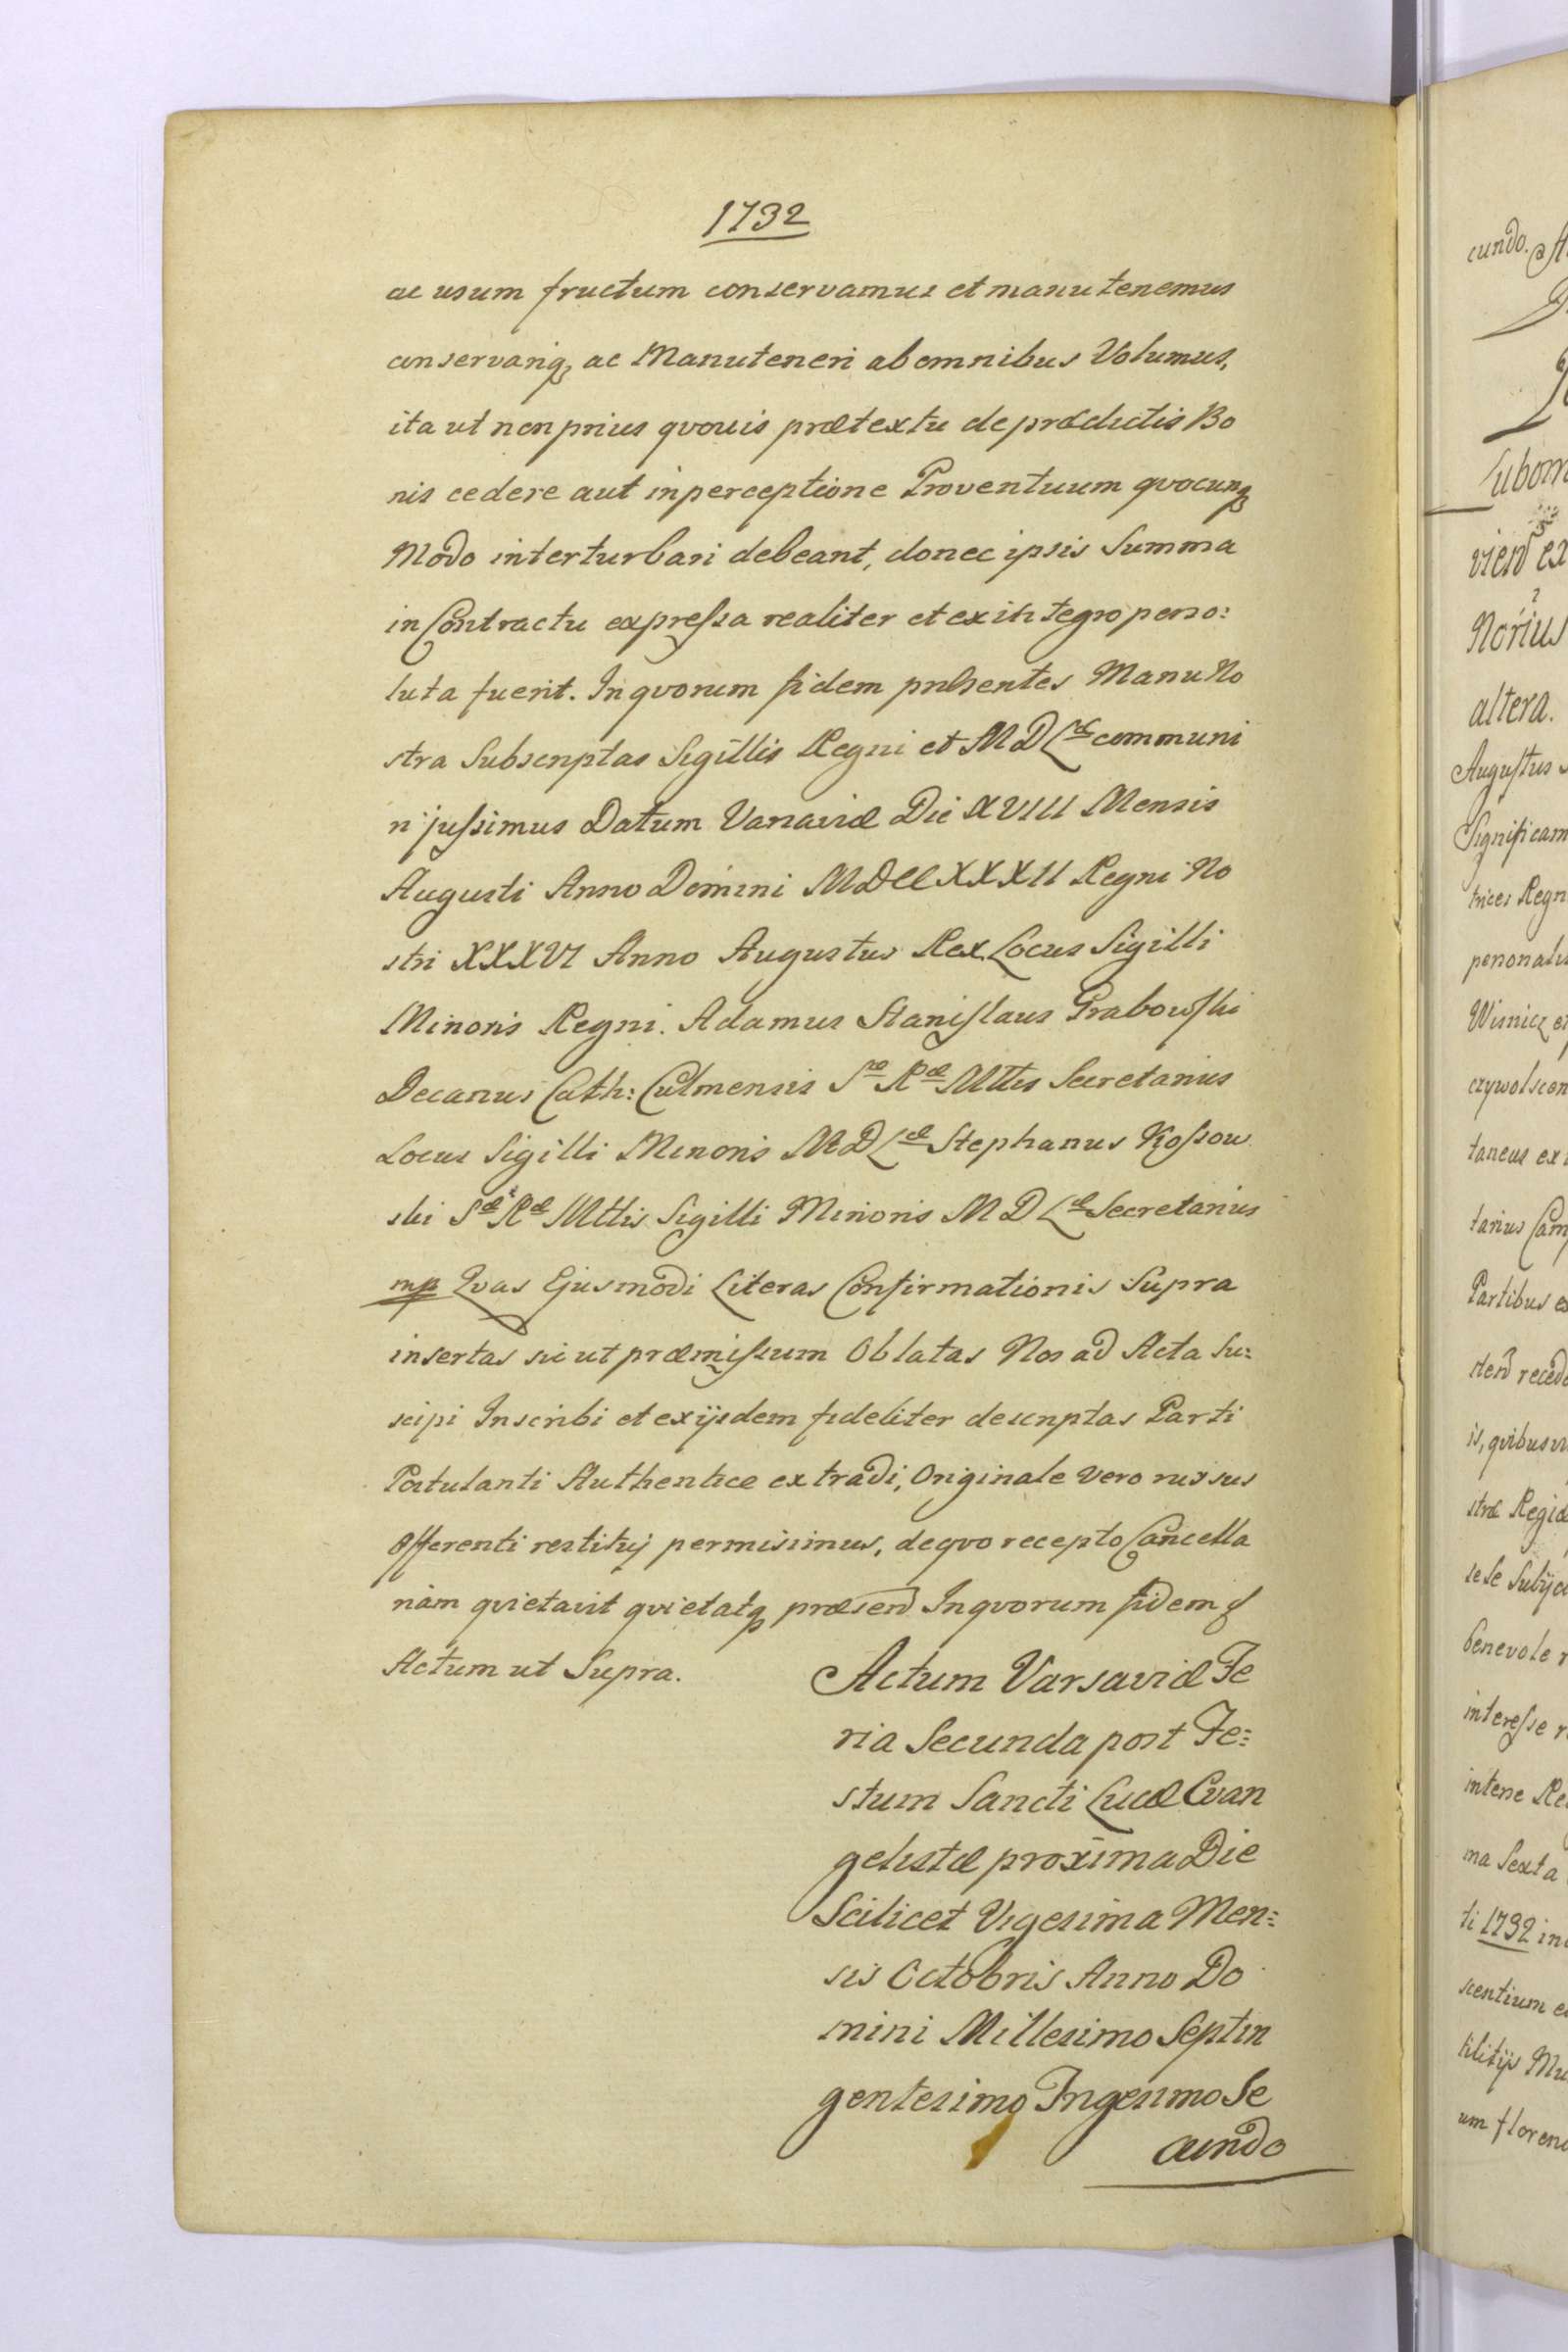 1732
ac usum fructum conservamus et manutenemus
conservariq; ac Manuteneri ab omnibus Volumus,
ita ut non prius qvovis prætextu de prædictis Bo
nis cedere aut in perceptione Proventuum qvocunq;
Modo interturbari debeant, donec ipsis Summa
in Contractu expressa realiter et ex integro perso:
luta fuerit. In qvorum fidem pnsentes Manu No
stra Subscriptas Sigillis Regni et M D Læ communi
ri jussimus Datum Varsaviæ Die XVIII Mensis
Augusti Anno Domini MDCCXXXII Regni No
stri XXXVI Anno Augustus Rex Locus Sigilli
Minoris Regni. Adamus Stanislaus Grabowski
Decanus Cath: Culmensis Sæ Ræ Mttis Secretarius
Locus Sigilli Minoris M D Læ Stephanus Kossow
ski Sæ Ræ Mttis Sigilli Minoris M D Læ Secretarius
mp Qvas Ejusmodi Literas Confirmationis Supra
insertas sic ut præmissum Oblatas Nos ad Acta Su:
scipi Inscribi et ex ijsdem fideliter descriptas Parti
Postulanti Authentice extradi, Originale vero rursus
Offerenti restituj permisimus, de qvo recepto Cancella
riam qvietavit qvietatq; præsen In qvorum fidem
Actum ut Supra.
Actum Varsaviæ Fe
ria Secunda post Fe:
stum Sancti Lucæ Evan
gelistæ proxima Die
Scilicet Vigesima Men:
sis Octobris Anno Do
mini Millesimo Septin
gentesimo Trigesimo Se
cundo
cundo.
Lubom
vien ex
altera.
Augustus
Significam
trices Regn
personalit
Wisnicz et
taneus ex
tarius Cam
Partibus
is, qvibusvi
stræ Regiæ
sese Subijci
benevole
interesse
ma Sexta
ti 1732 in
um floren